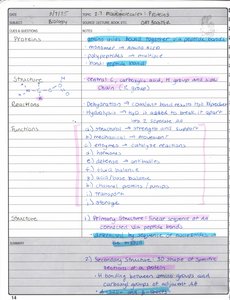 DATE 9/9/25 TOPIC 2.3 Macromolecules: Proteins
SUBJECT Biology SOURCE (LECTURE, BOOK, ETC)
CLASS & QUESTIONS NOTES
Proteins
amino acids bound together via peptide bonds
- monomer → amino acid
- polypeptides → multiple
- bond: peptide bond
Structure
central C, carboxylic acid, H group and side
chain (R group)
Reactions
Dehydration →
Hydrolysis → H2O is added to break it apart
Functions
a) structural → strength and support
b) mechanical → movement
c) enzymes → catalyze reactions
d) hormones
e) defense → antibodies
f) fluid balance
g) acid/base balance
h) channel proteins / pumps
i) transport
j) storage
Structure
1) Primary Structure: linear sequence of aa
connected via peptide bonds
- determined by sequence of nucleotides in
SUMMARY
2) Secondary Structure: 3D shape of specific
sections of a protein
- H bonding between amino groups and
carboxyl groups of adjacent aa
14